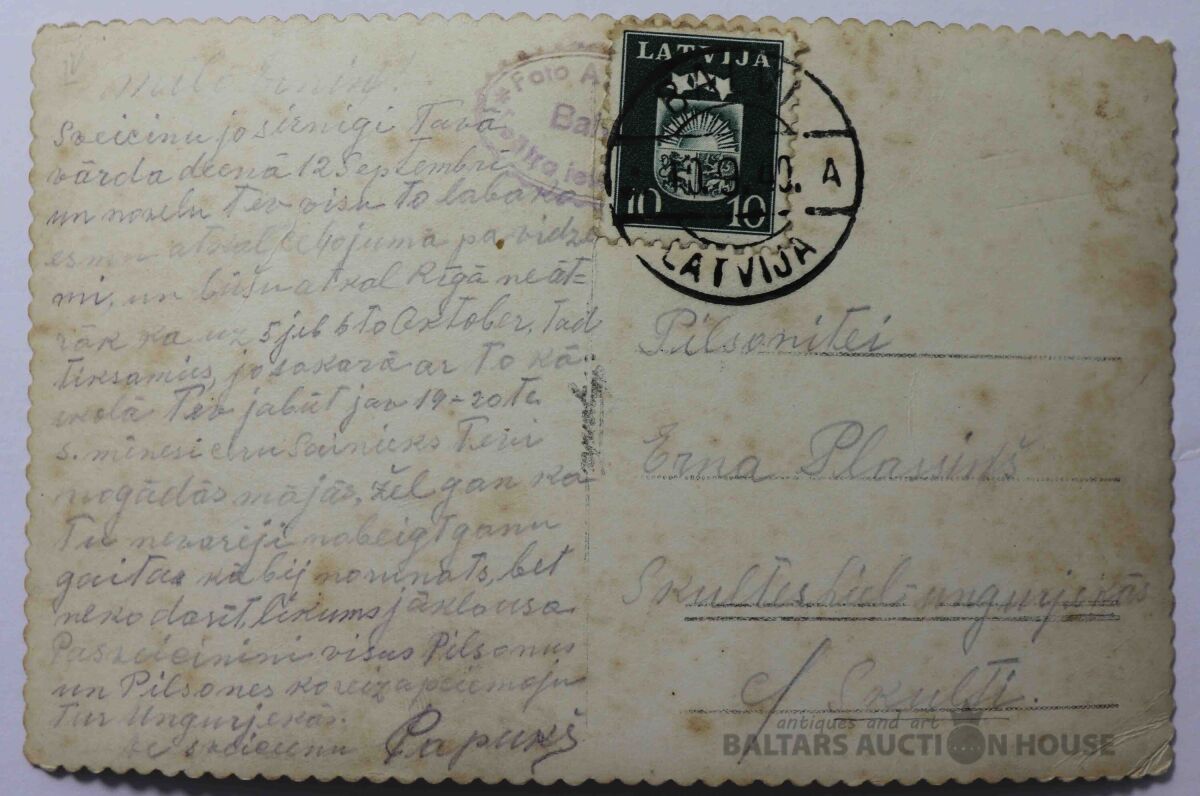 mīlo Ernin!
Sveicinu jo sirnigi Tavā
vārda deenā 12 Septembri
un novelu Tev visu to labako
esmu atkal ceļojumā pa vidze
mi, un būšu atkal Rīgā neāt-
rāk ka uz 5 jeb 6 to Oktober, tad
tiksamies, jo sakarā ar to kā
skolā Tev jabūt jav 19-20 to
s. mēnesi ceru Sainieks Tevi
nogādās mājās, žel gan ka
Tu nevarēji nobeigt ganu
gaitas kā bij norunāts, bet
neko darīt likums jāklousa
Pasveicinini visus Pilsonus
un Pilsones ko reiz apciemoju
tur Ungurjekās.
sveiceenu Papiņš
*Foto A
Bals
LATVIJA
10 10
11.9.40. A
LATVIJA
Pilsonitei
Erna Plassiņš
Skultes Liel-ungurjekās
c/ Skulti.
antiques and art
BALTARS AUCTION HOUSE